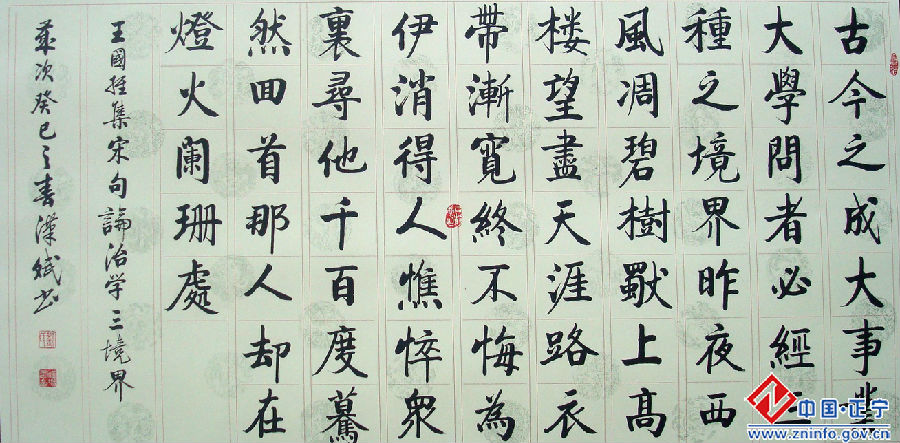 古今之成大事業
大學問者必經三
種之境界昨夜西
風凋碧樹獨上高
楼望盡天涯路衣
帶漸寬終不悔為
伊消得人憔悴衆
裏尋他千百度驀
然回首那人却在
燈火闌珊處
王國維集宋句論治学三境界
歲次癸巳之春漢斌书
中国·正宁
www.zninfo.gov.cn